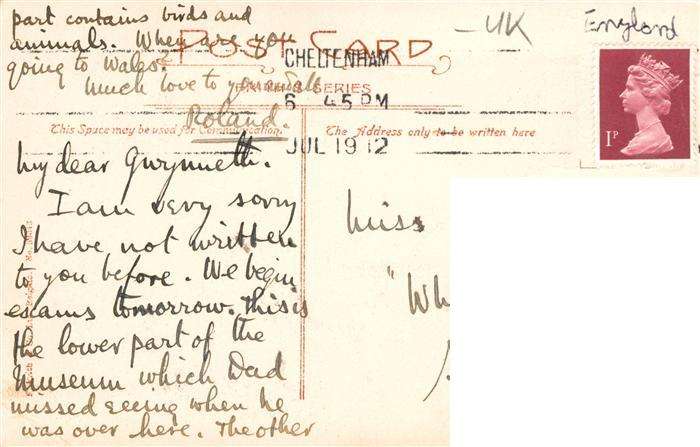 part contains birds and
animals. When are you
going to Wales.
Much love to you all
Roland.
POST CARD
SERIES
This Space may be used for Communication.
The Address only to be written here
CHELTENHAM
6 45 PM
JUL 19 12
- UK
England
1P
My dear Gwynneth.
I am very sorry
I have not written
to you before. We begin
exams tomorrow. This is
the lower part of the
Museum which Dad
missed seeing when he
was over here. The other
Miss
"Wh